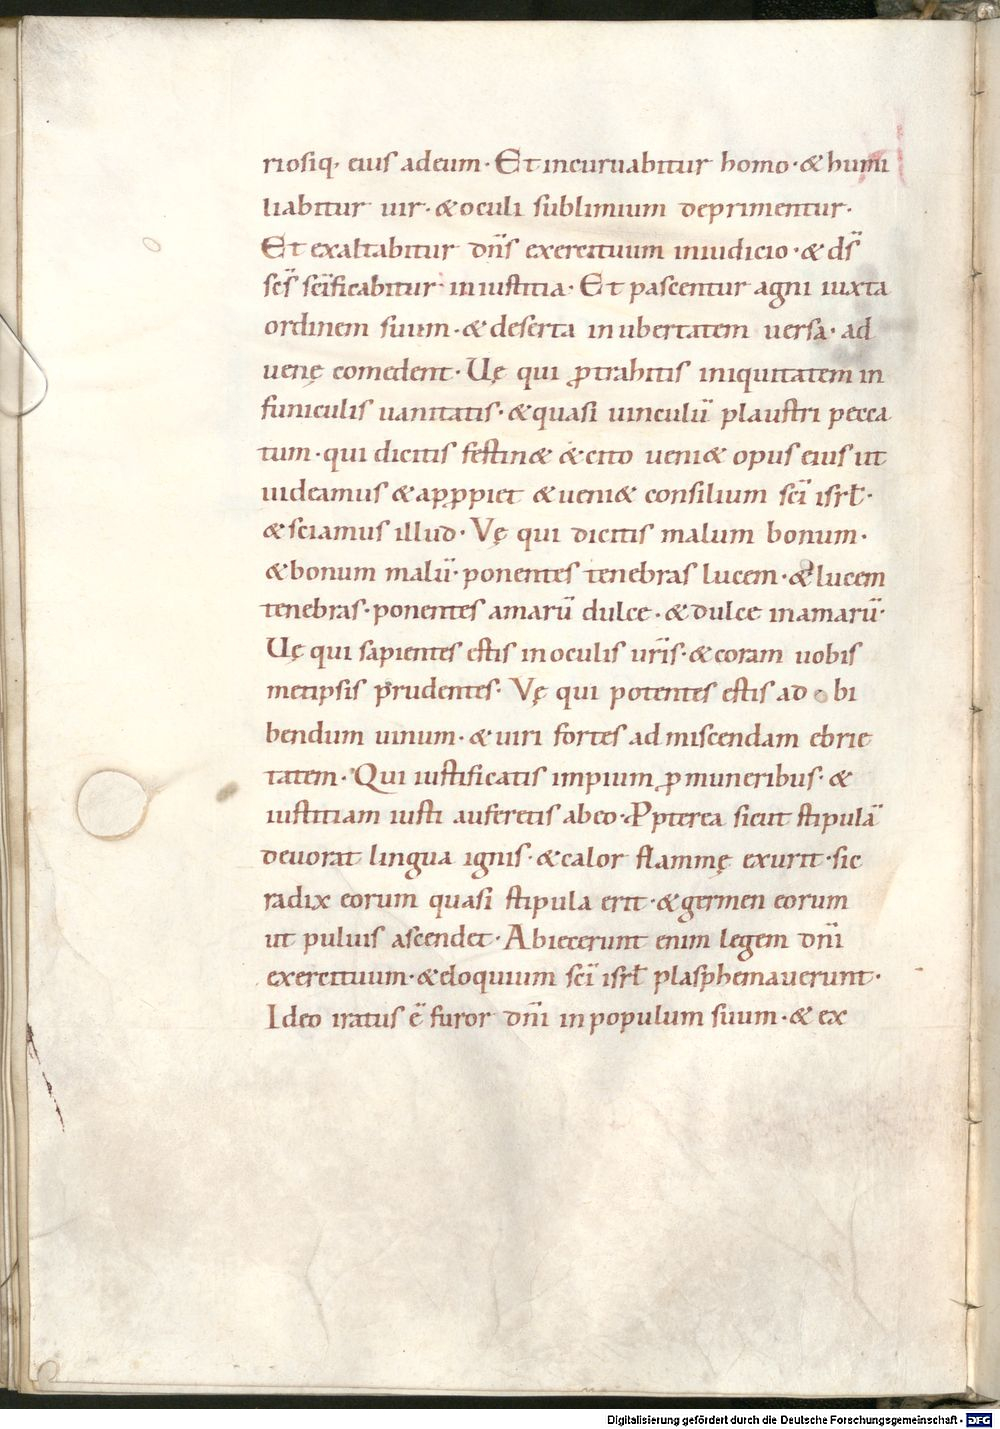 riosiq; eius ad eum· Et incuruabitur homo· & humi
liabitur uir· & oculi sublimium deprimentur·
Et exaltabitur dn̄s exercituum in iudicio· & ds̄
sc̄s sc̄ificabitur· in iustitia· Et pascentur agni iuxta
ordinem suum· & deserta in ubertatem uersa· ad
uenę comedent· Uę qui ꝓtrahitis iniquitatem in
funiculis uanitatis· & quasi uinculū plaustri pecca
tum· qui dicitis festin& & cito ueni& opus eius ut
uideamus & apꝓpiet & ueni& consilium sc̄i isrł·
& sciamus illud· Vę qui dicitis malum bonum·
& bonum malū· ponentes tenebras lucem· & lucem
tenebras· ponentes amarū dulce· & dulce in amarū·
Uę qui sapientes estis in oculis ur̄is· & coram uobis
metipsis prudentes· Vę qui potentes estis ad bi
bendum uinum· & uiri fortes ad miscendam ebrie
tatem· Qui iustificatis impium ꝓ muneribus· &
iustitiam iusti auferetis ab eo· Ꝓpterea sicut stipulā
deuorat lingua ignis· & calor flammę exurit· sic
radix eorum quasi stipula erit· & germen eorum
ut puluis ascendet· Abiecerunt enim legem dn̄i
exercituum· & eloquium sc̄i isrł plasphemauerunt·
Ideo iratus ē furor dn̄i in populum suum· & ex
Digitalisierung gefördert durch die Deutsche Forschungsgemeinschaft - DFG